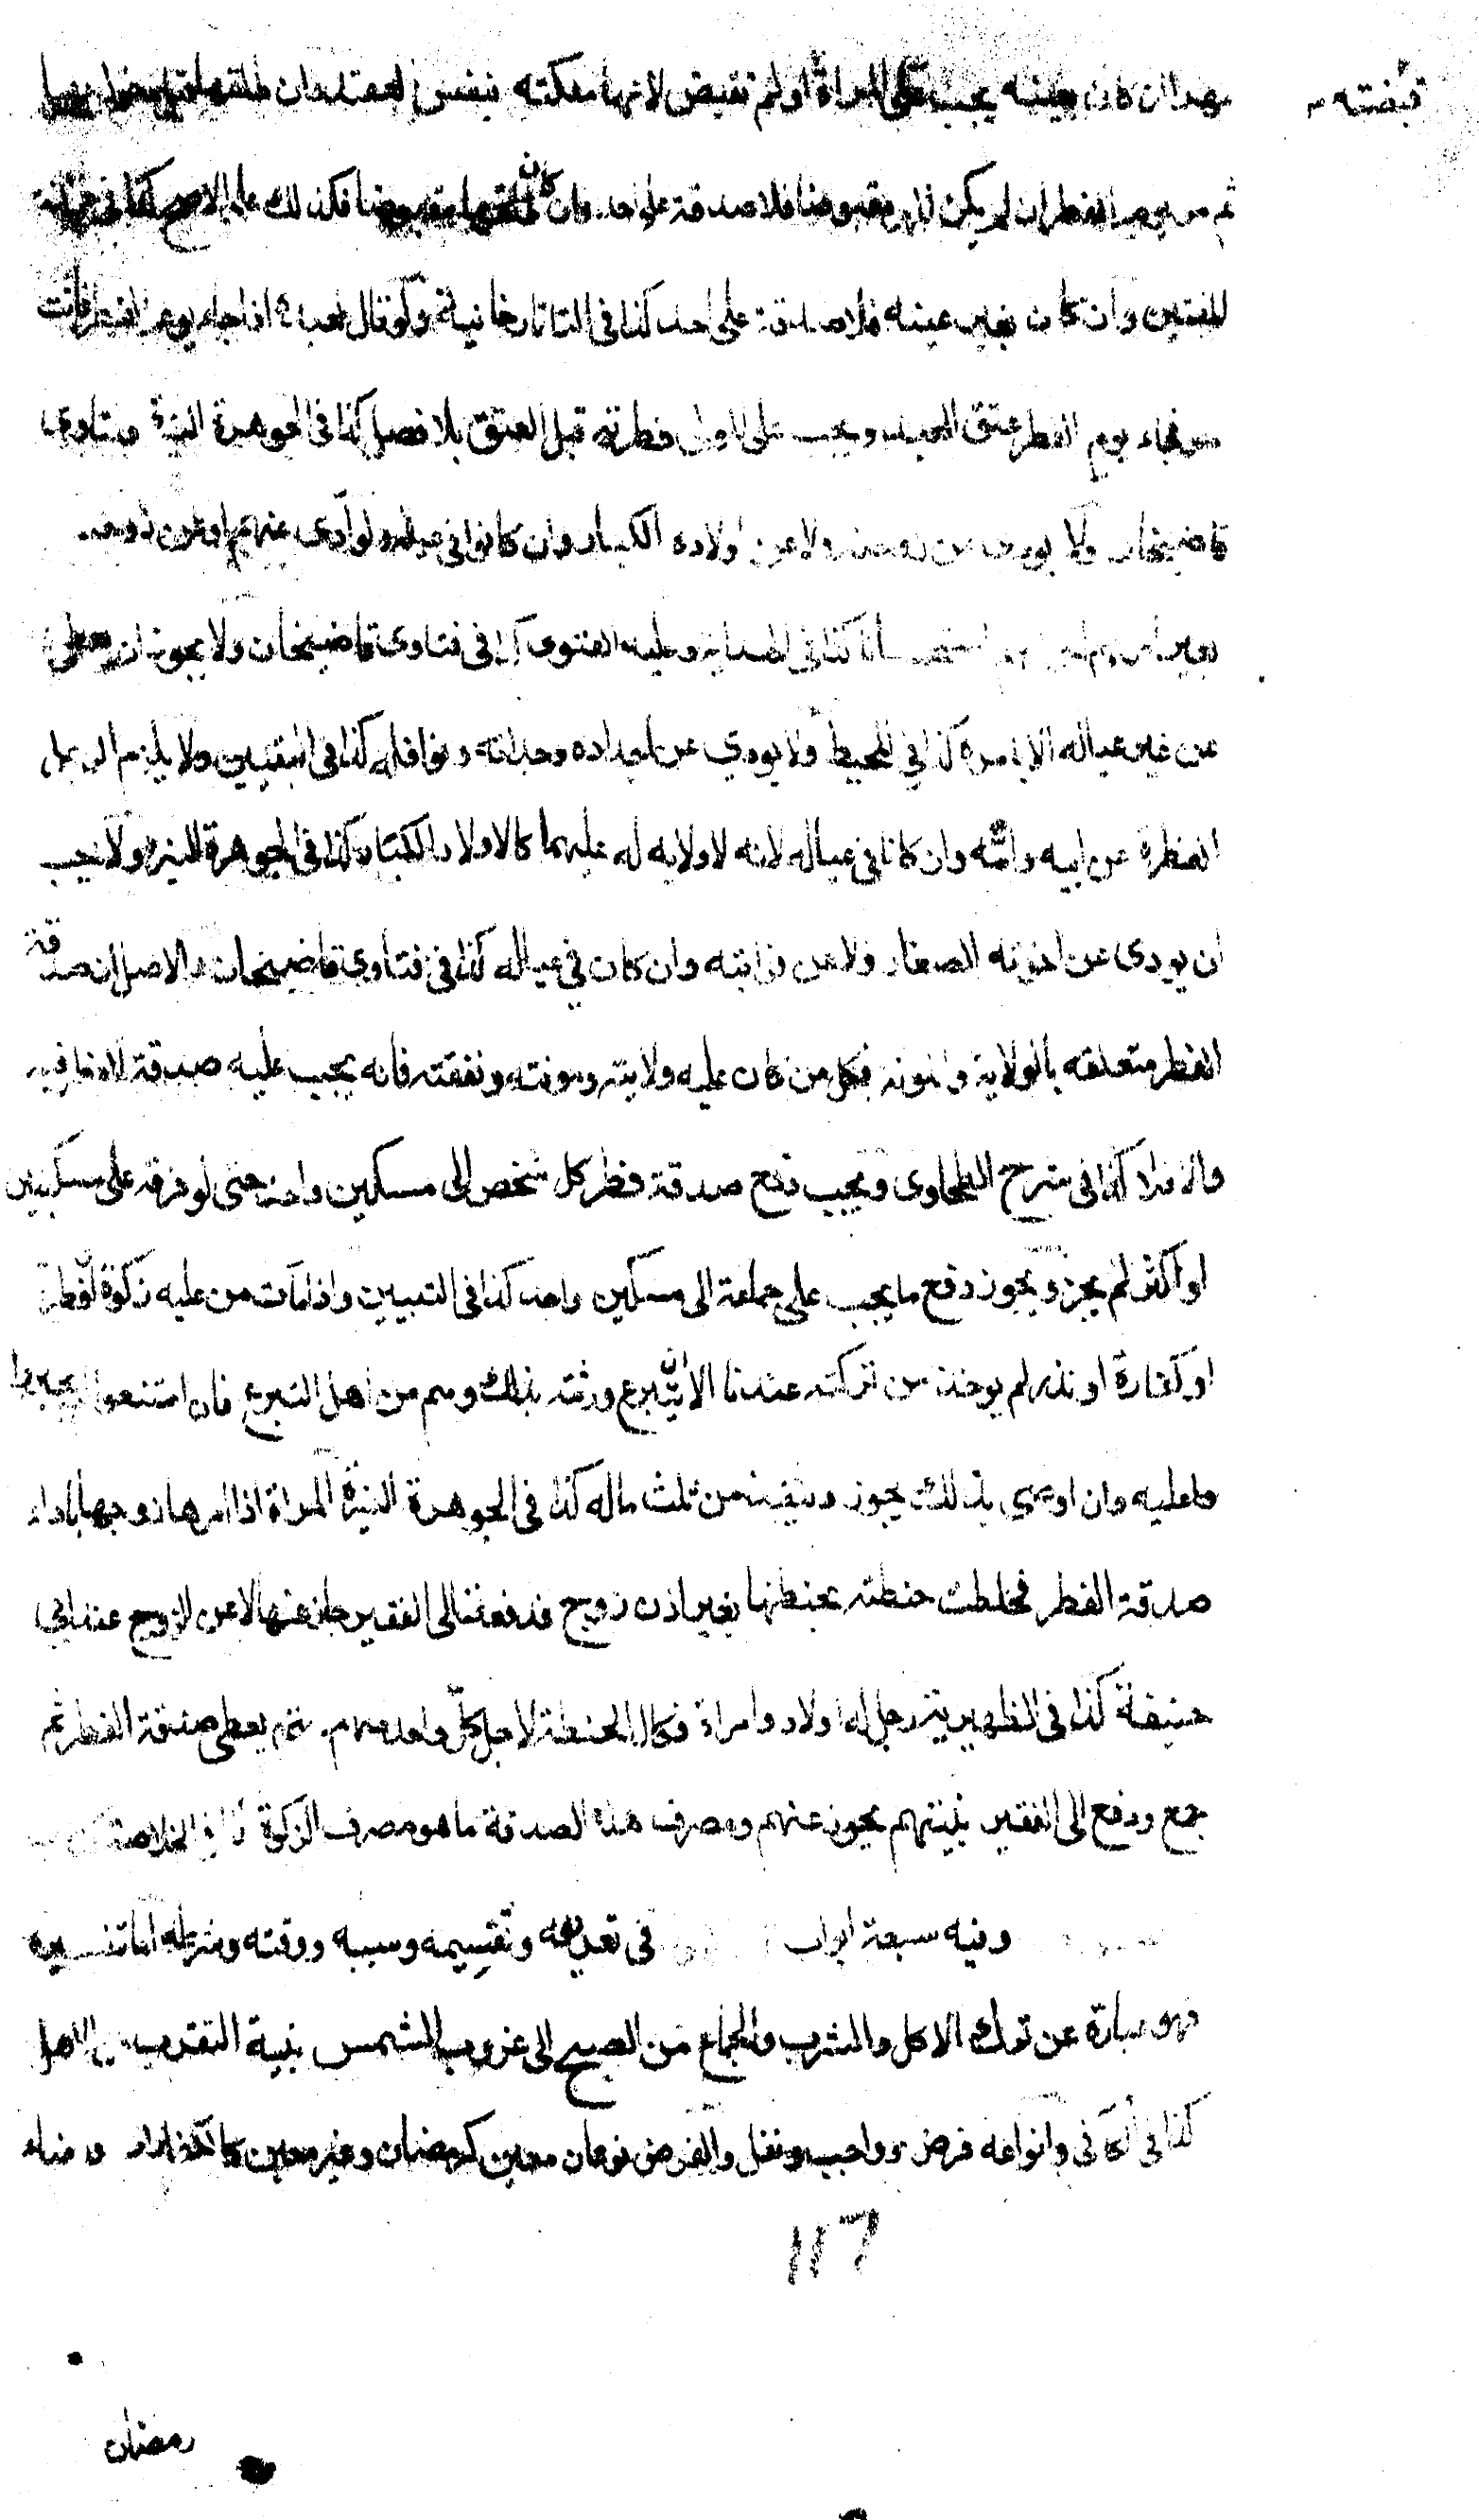 قبضته
مهرا ان كان بعينه يجب على المراة او لم تقبض لانها ملكته بنفس العقد فان طلقها قبل الدخول بها
ثم مر يوم الفطر ان لم يكن المهر مقبوضا فلا صدقة على احد وان كان المهر مقبوضا فكذلك على الاصح كذا في خزانة
المفتين وان كان بغير عينه فلا صدقة على احد كذا في التاتارخانية ولو قال لعبده اذا جاء يوم الفطر فانت
حر فجاء يوم الفطر عتق العبد ويجب على المولى فطرته قبل العتق بلا فصل كذا في الجوهرة النيرة وفتاوى
قاضيخان ولا يودى عن زوجته ولا عن اولاده الكبار وان كانوا في عياله ولو ادى عنهم او عن زوجته
بغير امرهم اجزاهم استحسانا كذا في الهداية وعليه الفتوى كذا في فتاوى قاضيخان ولا يجوز ان يعطى
عن غير عياله الا بامره كذا في المحيط ولا يودي عن اجداده وجداته ونوافله كذا في التبيين ولا يلزم الرجل
الفطرة عن ابيه وامّه وان كانا في عياله لانه لا ولاية له عليهما كالاولاد الكبار كذا في الجوهرة النيرة ولا يجب
ان يودى عن اخوته الصغار ولا عن قرابته وان كان في عياله كذا في فتاوى قاضيخان والاصل ان صدقة
الفطر متعلقه بالولاية والمونة فكل من كان عليه ولايته ومونته ونفقته فانه يجب عليه صدقة الفطر فيه
والا فلا كذا في شرح الطحاوى ويجب دفع صدقة فطر كل شخص الى مسكين واحد حتى لو فرقه على مسكينين
او اكثر لم يجز ويجوز دفع ما يجب على جماعة الى مسكين واحد كذا في التبيين واذا مات من عليه زكوة او فطرة
او كفارة او نذر لم يوخذ من تركته عندنا الا ان يتبرع ورثته بذلك وهم من اهل التبرع فان امتنعوا لم يجبروا
عليه وان اوصى بذلك يجوز وينفذ من ثلث ماله كذا في الجوهرة النيرة المراة اذا امرها زوجها باداء
صدقة الفطر فخلطت حنطته بحنطتها بغير اذن زوج فدفعت الى الفقير جاز عنها لا عن الزوج عند ابي
حنيفة كذا في الظهيرية رجل له اولاد وامراة فكال الحنطة لاجل كل واحد منهم حتى يعطى صدقة الفطر ثم
جمع ودفع الى الفقير بنيتهم يجوز عنهم ومصرف هذه الصدقة ما هو مصرف الزكوة كذا في الخلاصة
وفيه سبعة ابواب في تعريفه وتقسيمه وسببه ووقته وشرطه اما تفسيره
فهو عبارة عن ترك الاكل والشرب والجماع من الصبح الى غروب الشمس بنية التقرب من الاهل
كذا في الكافي وانواعه فرض وواجب ونفل والفرض نوعان معين كرمضان وغير معين كالكفارات وقضاء
117
رمضان